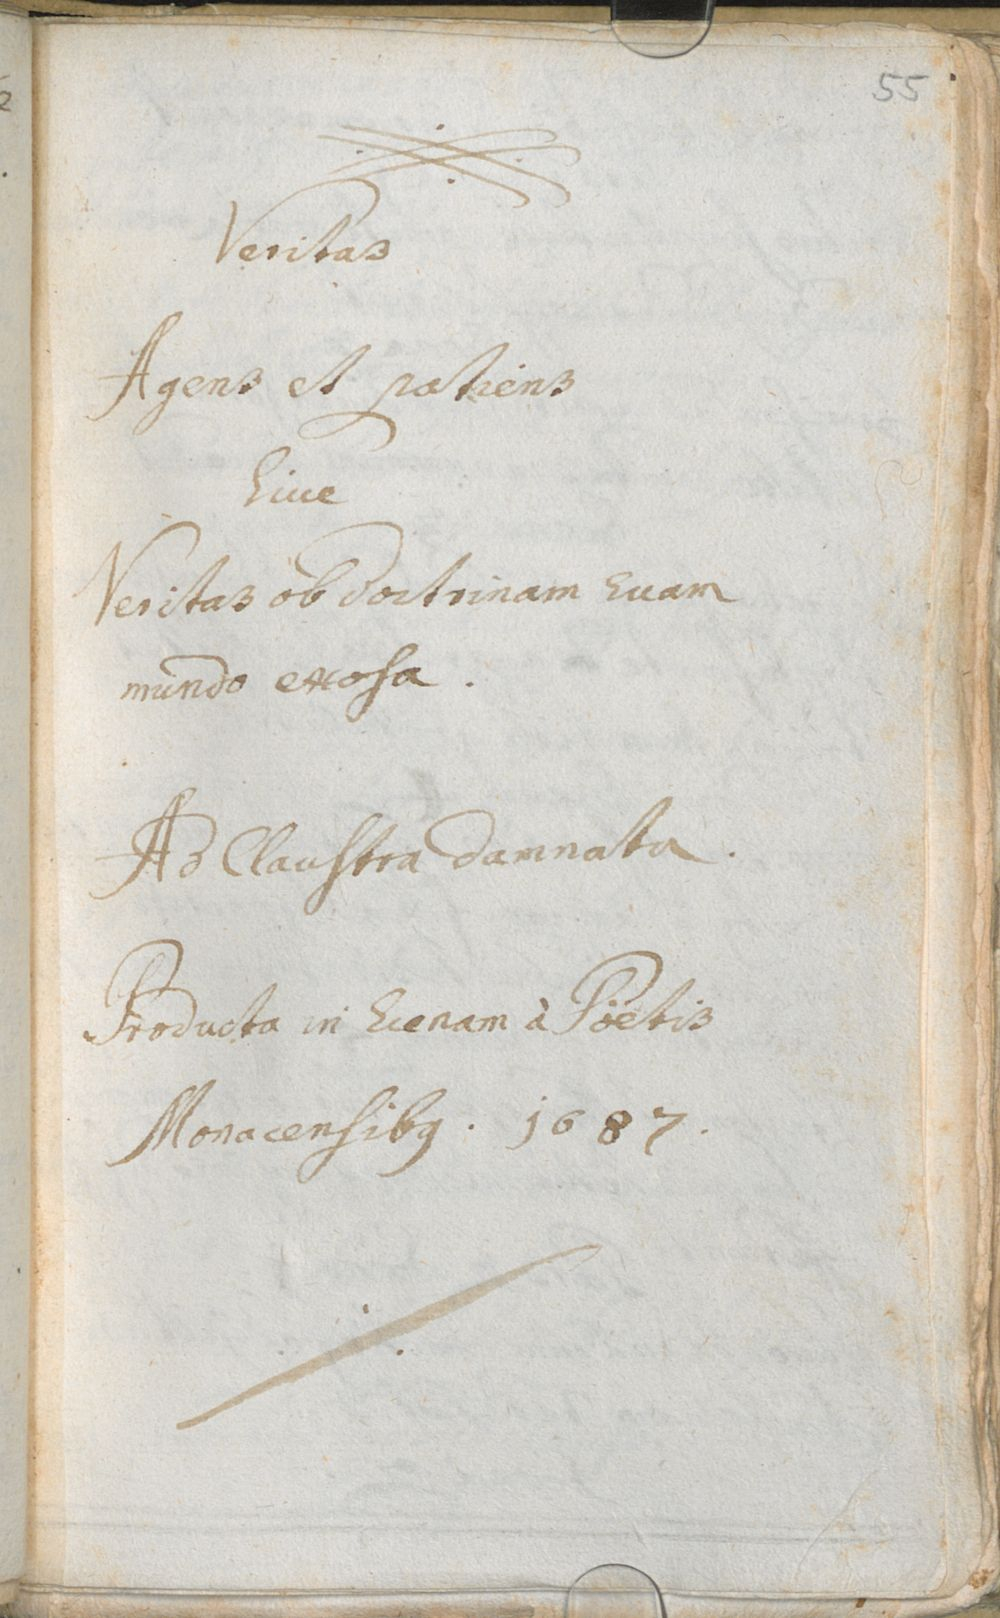 55
Veritas
Agens et patiens
Siue
Veritas ob doctrinam suam
mundo exosa.
Ad Claustra damnata.
Producta in Scenam à Poëtis
Monacensibq. 1687.